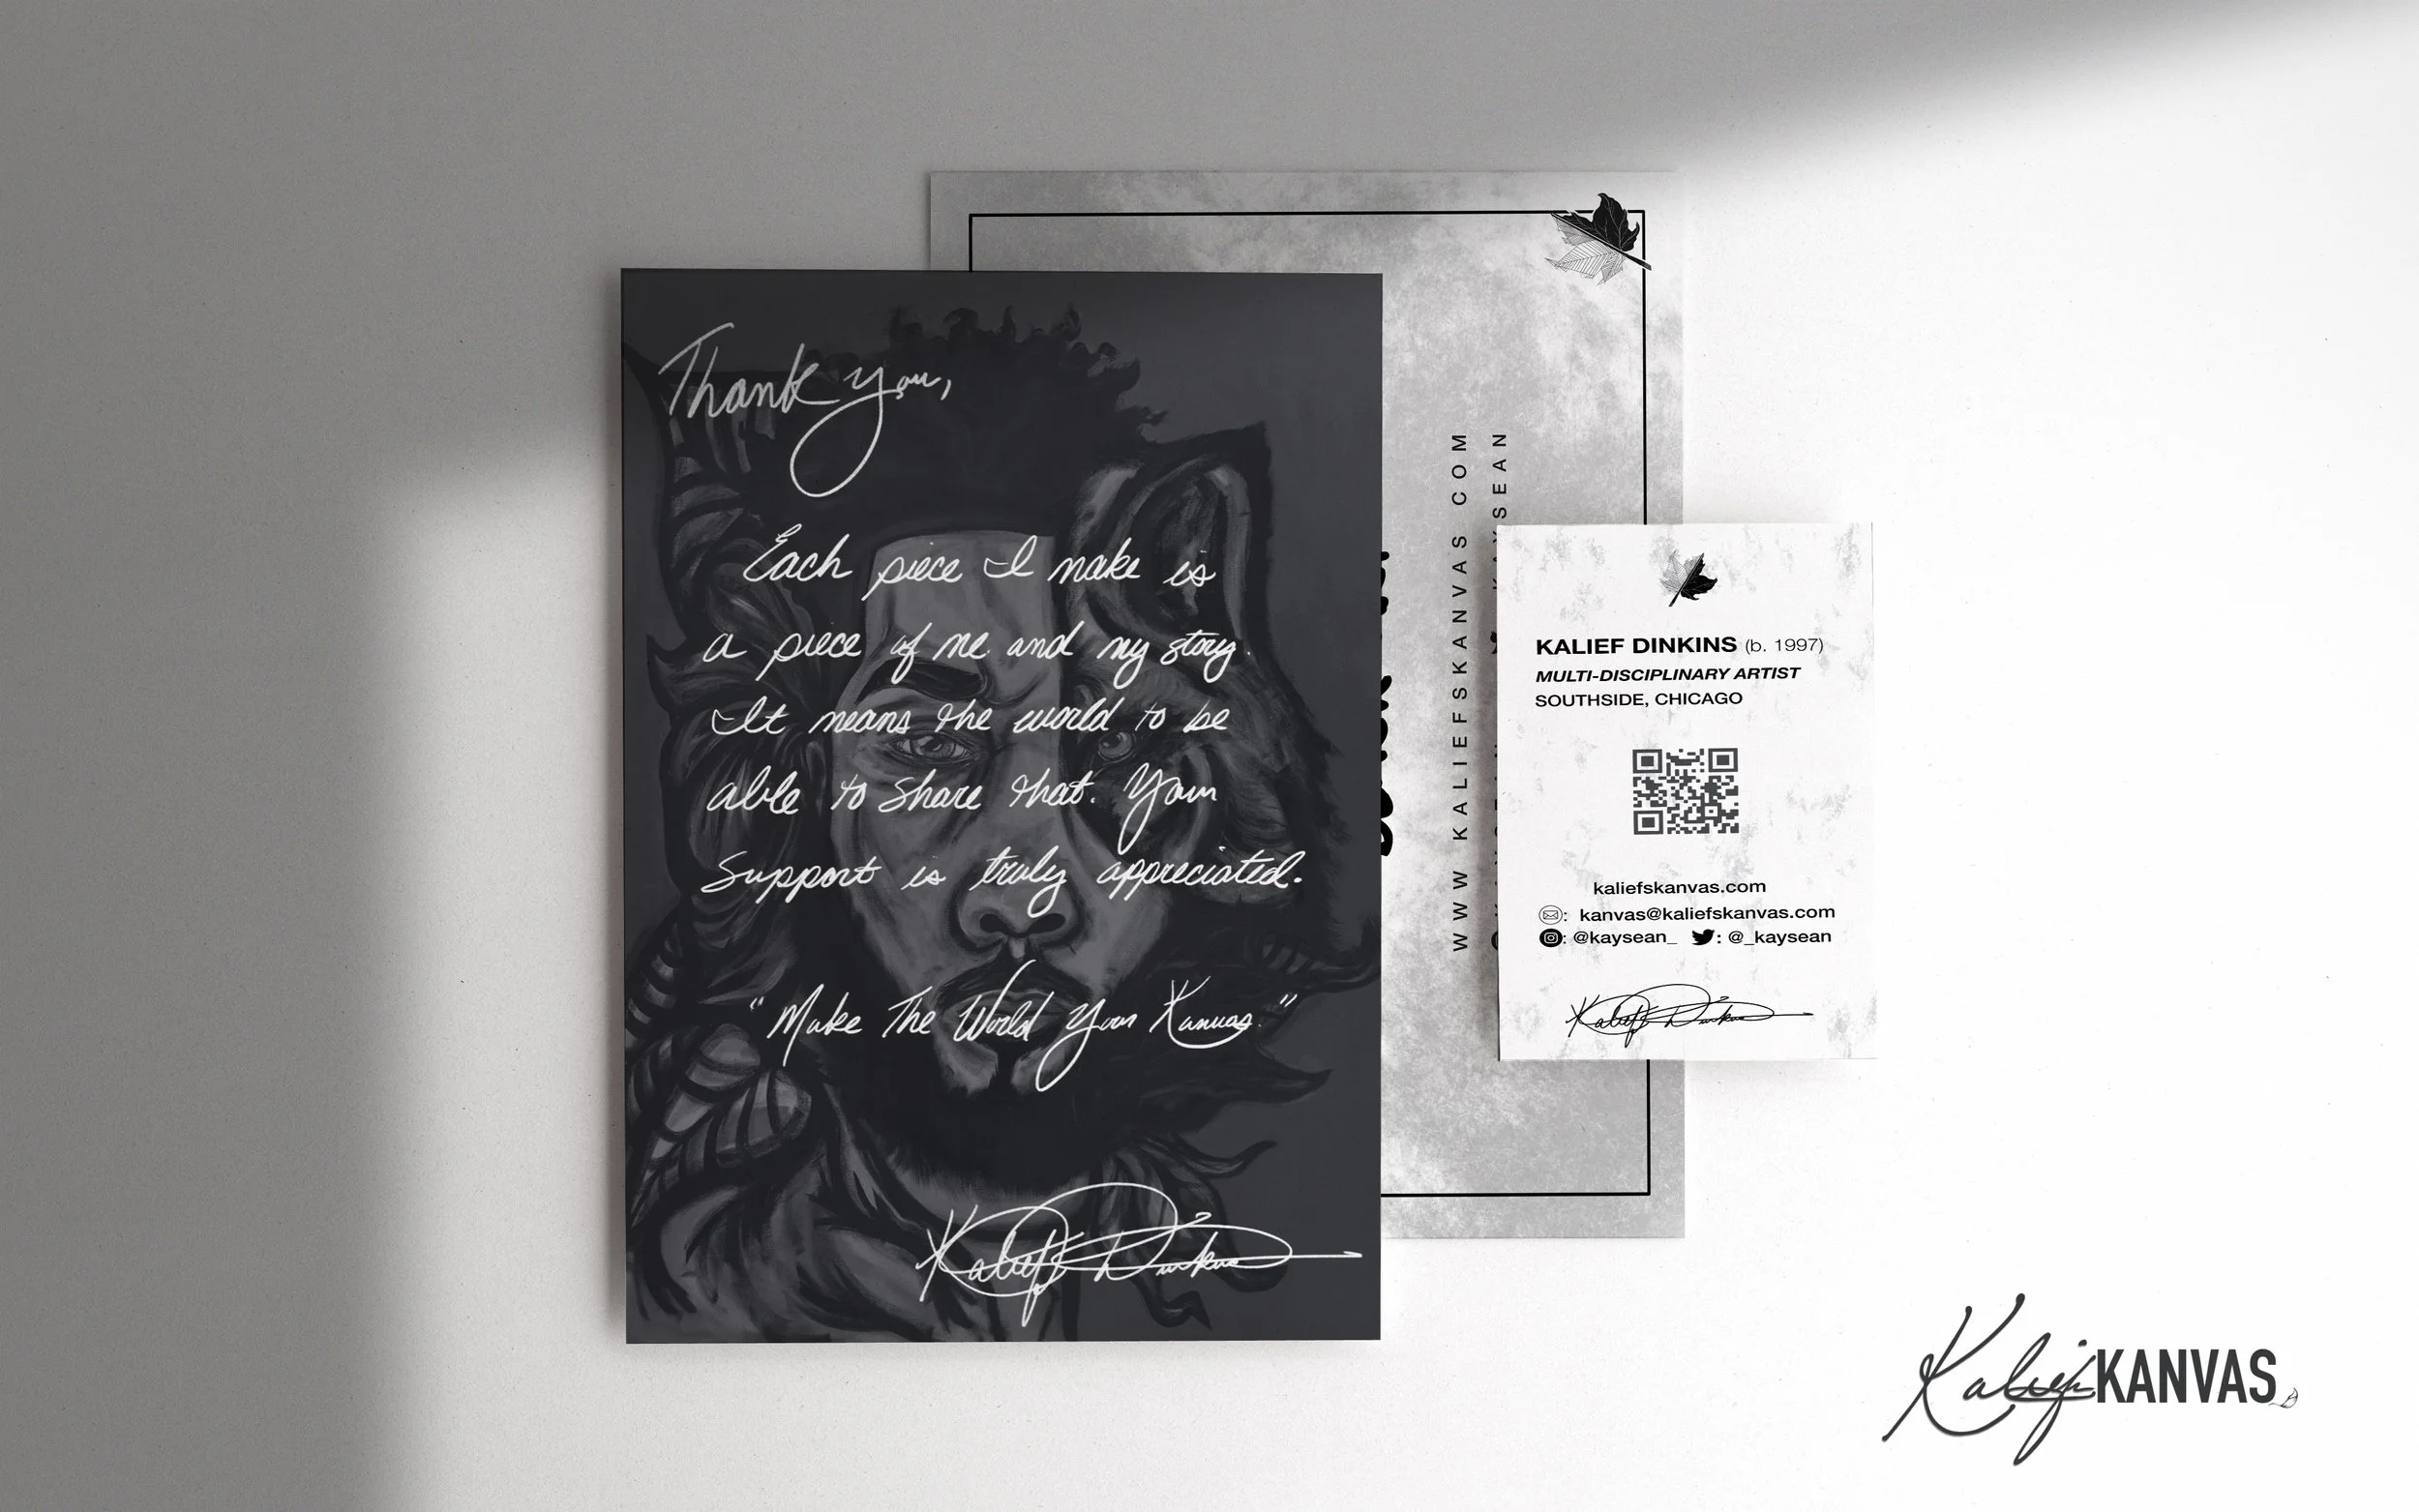 Thank you,
Each piece I make is
a piece of me and my story.
It means the world to be
able to share that. Your
Support is truly appreciated.
"Make The World Your Kanvas."
Kalief Dinkins
WWW KALIEFSKANVAS COM
KAYSEAN
KALIEF DINKINS (b. 1997)
MULTI-DISCIPLINARY ARTIST
SOUTHSIDE, CHICAGO
kaliefskanvas.com
: kanvas@kaliefskanvas.com
: @kaysean_ : @_kaysean
Kalief Dinkins
Kalief KANVAS